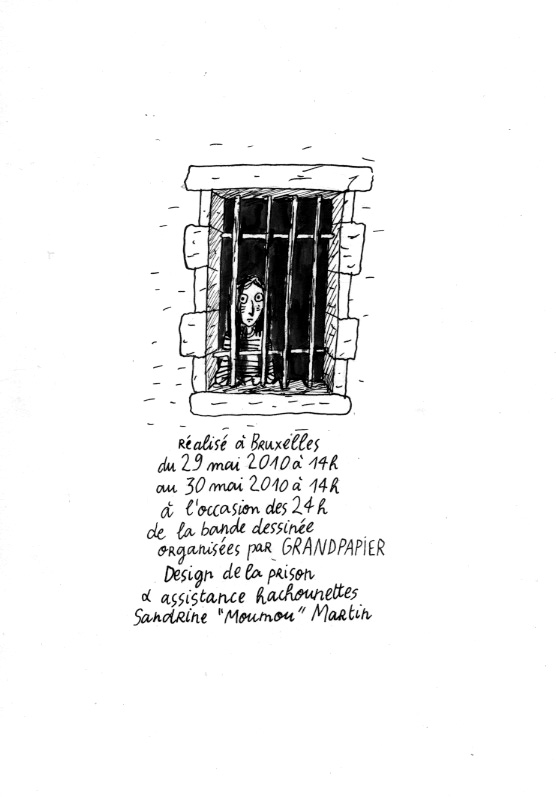 réalisé à Bruxelles
du 29 mai 2010 à 14h
au 30 mai 2010 à 14h
à l'occasion des 24h
de la bande dessinée
organisées par GRANDPAPIER
Design de la prison
& assistance hachounettes
Sandrine "Moumou" Martin